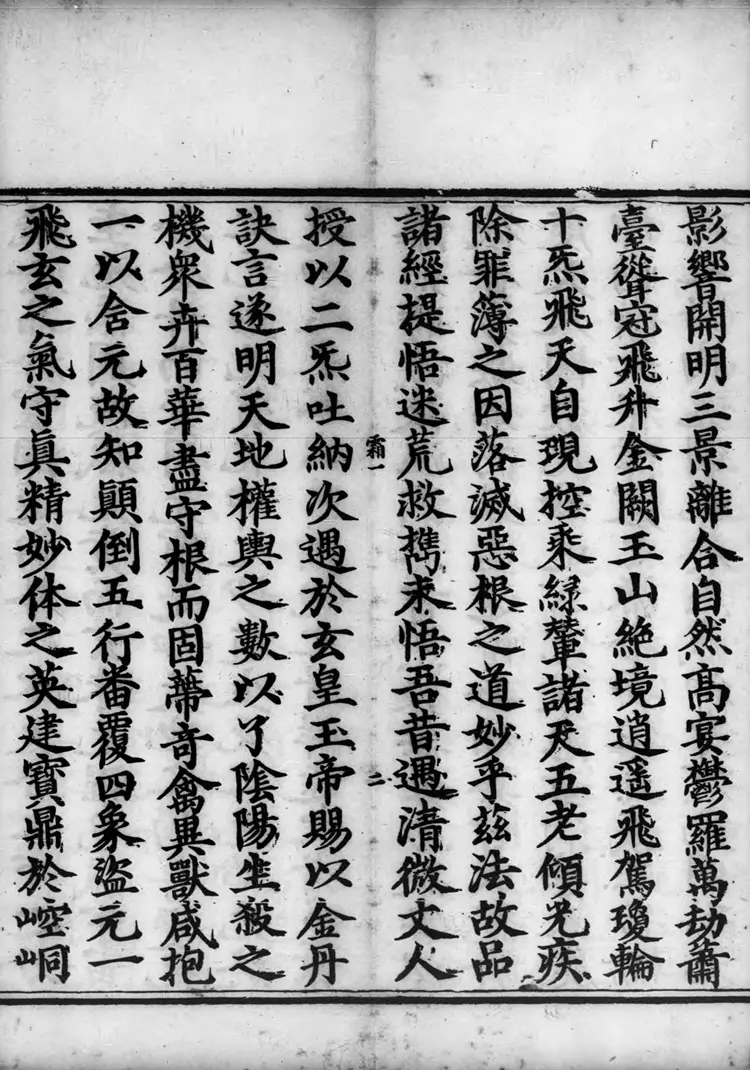 影響開明三景離合自然高宴鬱羅萬劫蕭
臺聳冠飛升金闕玉山絶境逍遥飛駕瓊輪
十炁飛天自現控乘緑輦諸天五老傾光疾
除罪薄之因落滅惡根之道妙乎茲法故品
諸經提悟迷荒救攜未悟吾昔遇清微丈人
霜一 二
授以二炁吐納次遇於玄皇玉帝賜以金丹
訣言遂明天地權輿之數以了陰陽生殺之
機衆卉百華盡守根而固蔕奇禽異獸咸抱
一以含元故知顛倒五行番覆四象盜元一
飛玄之氣守眞精妙体之英建寶鼎於崆峒